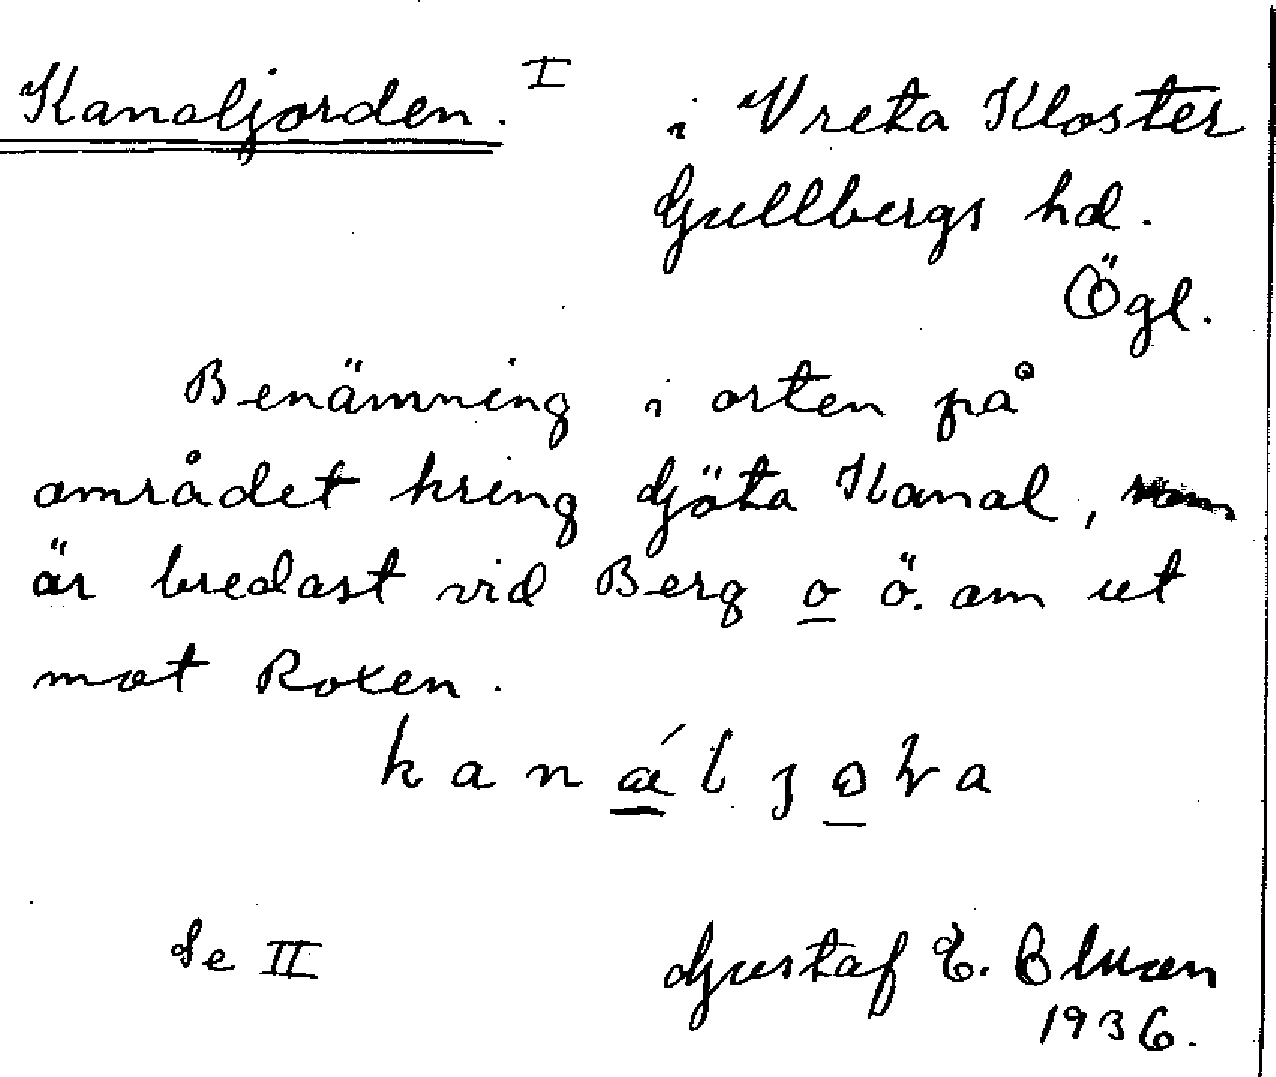 Kanaljorden. I
i Vreta Kloster
Gullbergs hd.
Ögl.
Benämning i orten på
området kring Göta Kanal,
är bredast vid Berg o ö. om ut
mot Roxen.
Se II
Gustaf E.
1936.